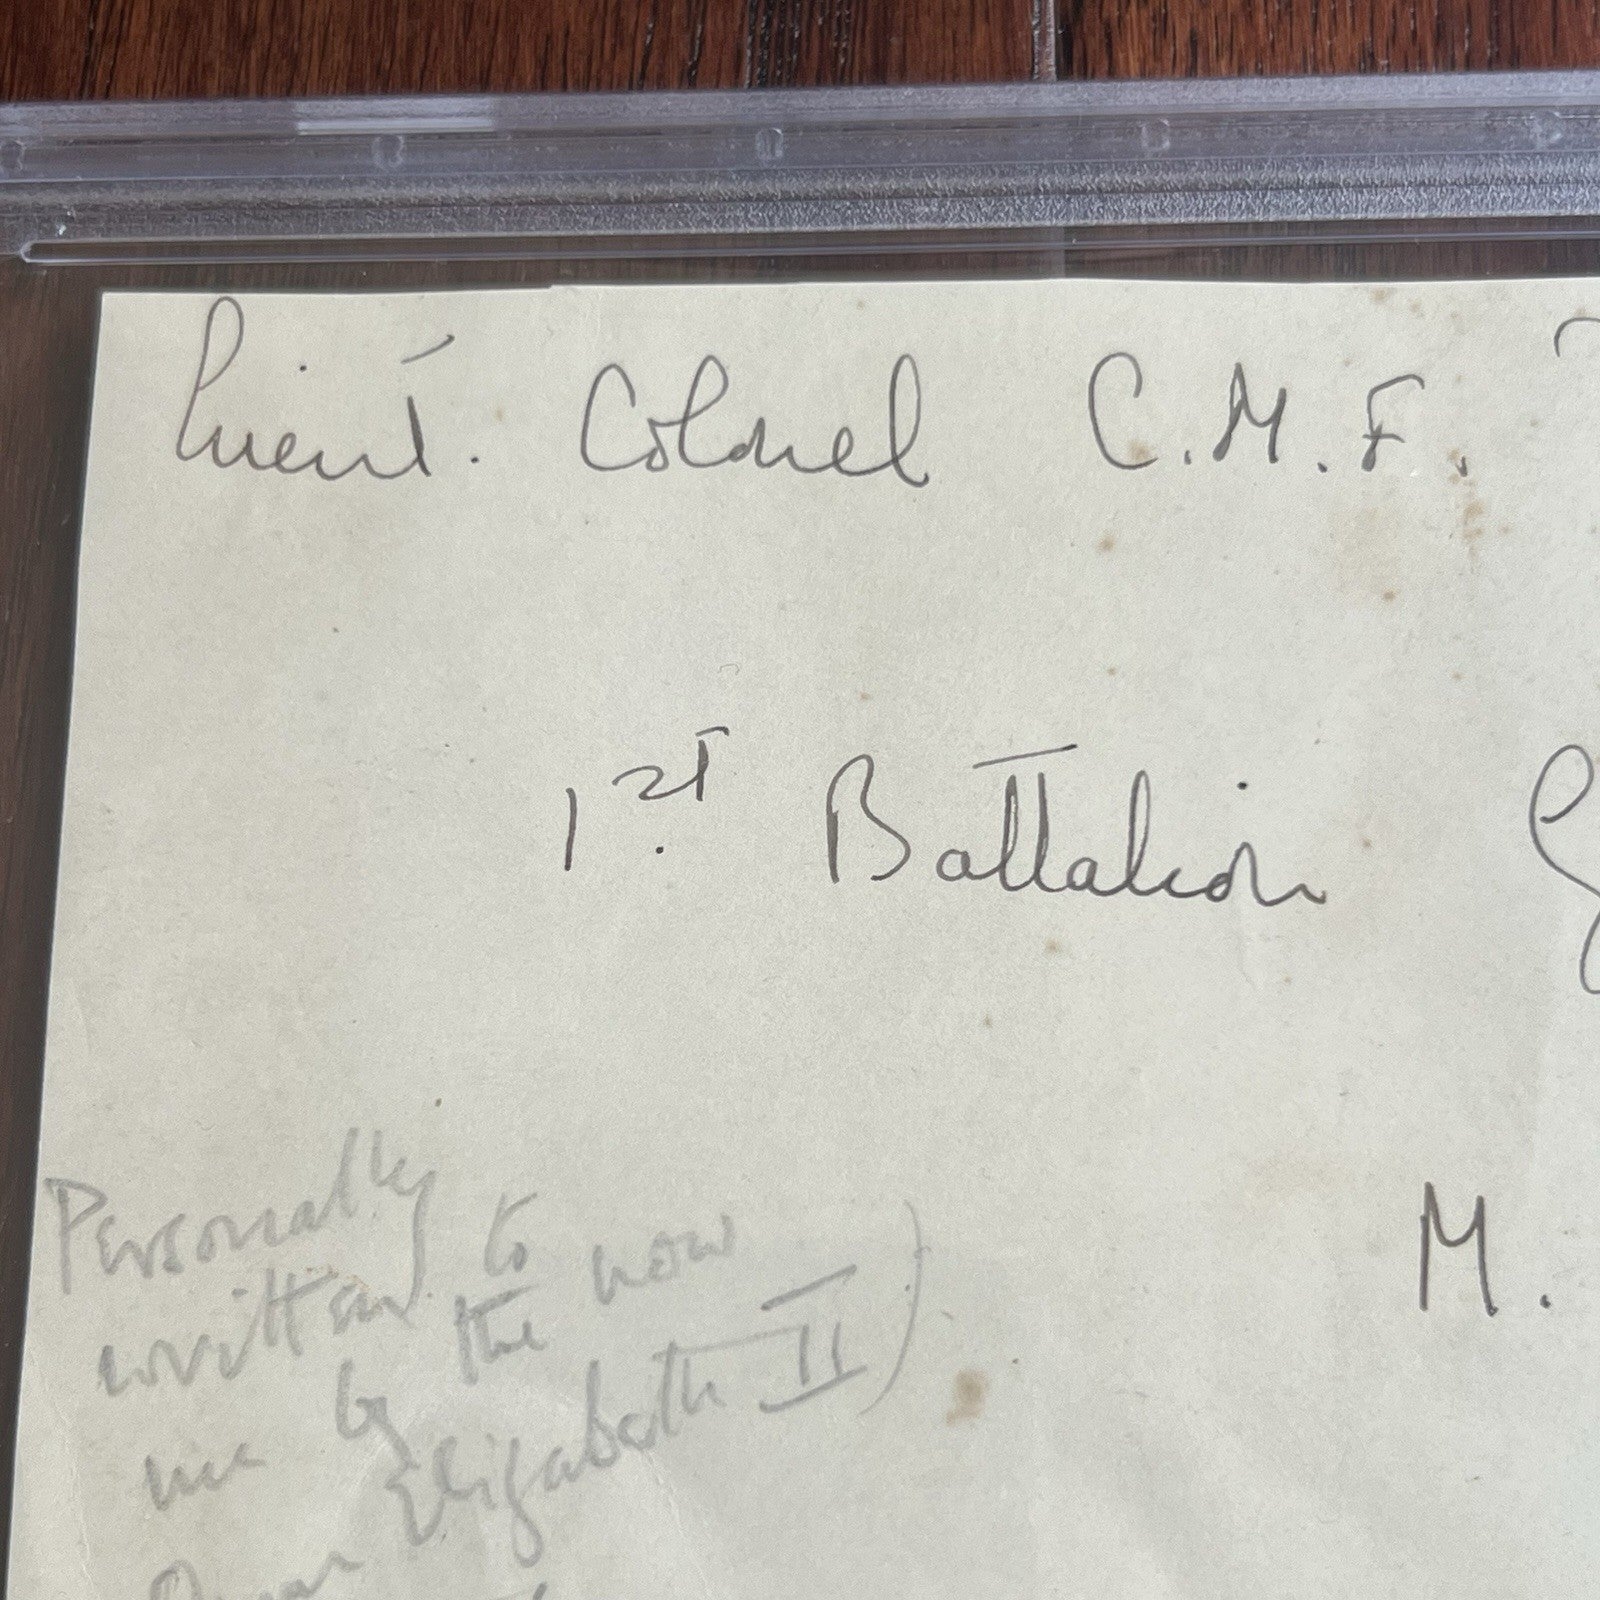 Lieut. Colonel C. M. F.
1.st Battalion G
M.
Personally
written to
me by the now
Queen Elizabeth II)